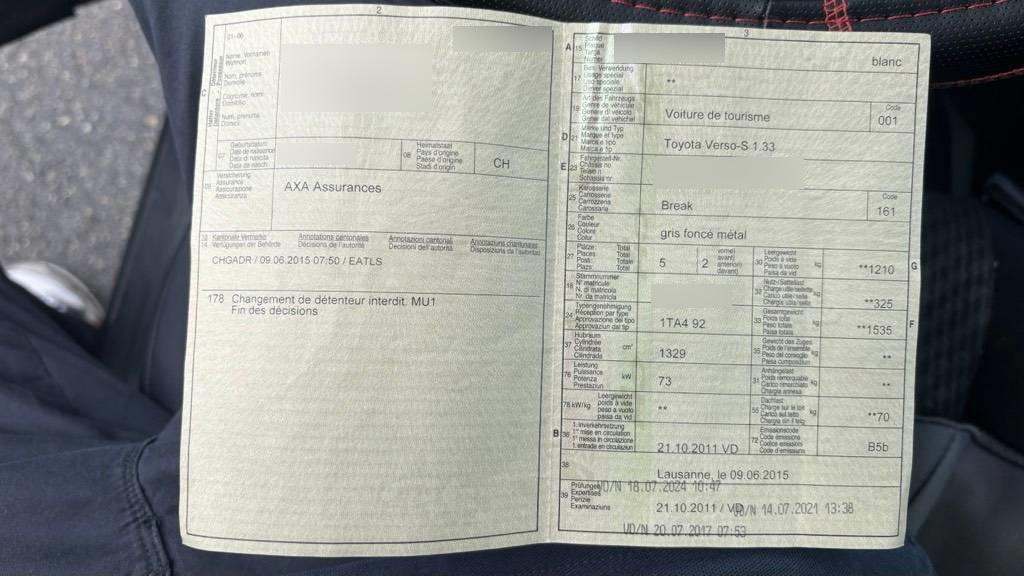 2
01-06
Name, Vornamen
Wohnort
Nom, prénoms
Domicile
Cognome, nomi
Domicilio
Num, prenums
Domicil
C
07
Geburtsdatum
Date de naissance
Data di nascita
Data da nasch.
08
Heimatstaat
Pays d'origine
Paese d'origine
Stadi d'origin
CH
09
Versicherung
Assurance
Assicurazione
Assicuranza
AXA Assurances
13 Kantonale Vermerke
14 Verfügungen der Behörde
Annotations cantonales
Décisions de l'autorité
Annotazioni cantonali
Decisioni dell'autorità
Annotaziuns chantunalas
Disposiziuns da l'autoritad
CHGADR / 09.06.2015 07:50 / EATLS
178 Changement de détenteur interdit. MU1
Fin des décisions
3
A 15
Schild
Plaque
Targa
Numer
blanc
17
Bes. Verwendung
Usage spécial
Uso speciale
Diever spezial
**
19
Art des Fahrzeugs
Genre de véhicule
Genere di veicolo
Gener dal vehichel
Voiture de tourisme
Code
001
D 21
Marke und Typ
Marque et type
Marca e tipo
Marca e tip
Toyota Verso-S 1.33
E 23
Fahrgestell-Nr.
Châssis no
Telaio n.
Schassis nr.
25
Karosserie
Carrosserie
Carrozzeria
Carossaria
Break
Code
161
26
Farbe
Couleur
Colore
Colur
gris foncé métal
27
Plätze: Total
Places: Total
Posti: Totale
Plazs: Total
5
2
vorne)
avant)
anteriori)
davant)
30
Leergewicht
Poids à vide
Peso a vuoto
Paisa da vid
kg
**1210
G
18
Stammnummer
N° matricule
N. di matricola
Nr. da matricla
32
Nutz-/Sattellast
Charge utile/sellette
Carico utile/sella
Chargia utila/sella
kg
**325
24
Typengenehmigung
Réception par type
Approvazione del tipo
Approvaziun dal tip
1TA4 92
33
Gesamtgewicht
Poids total
Peso totale
Paisa totala
kg
**1535
F
37
Hubraum
Cylindrée
Cilindrata
Cilindrada
cm³
1329
35
Gewicht des Zuges
Poids de l'ensemble
Peso del convoglio
Paisa cumposiziun
kg
**
76
Leistung
Puissance
Potenza
Prestaziun
kW
73
31
Anhängelast
Poids remorquable
Carico rimorchiato
Chargia annexa
kg
**
78 kW/kg
Leergewicht
poids à vide
peso a vuoto
paisa da vid
**
55
Dachlast
Charge sur le toit
Carico sul tetto
Chargia sin il tetg
kg
**70
B 36
1. Inverkehrsetzung
1re mise en circulation
1a messa in circolazione
1. entrada en circulaziun
21.10.2011 VD
72
Emissionscode
Code émissions
Codice emissioni
Code d'emissiuns
B5b
38
Lausanne, le 09.06.2015
39
Prüfungen
Expertises
Perizie
Examinaziuns
VD/N 18.07.2024 10:47
21.10.2011 / VD
VD/N 14.07.2021 13:38
VD/N 20.07.2017 07:53